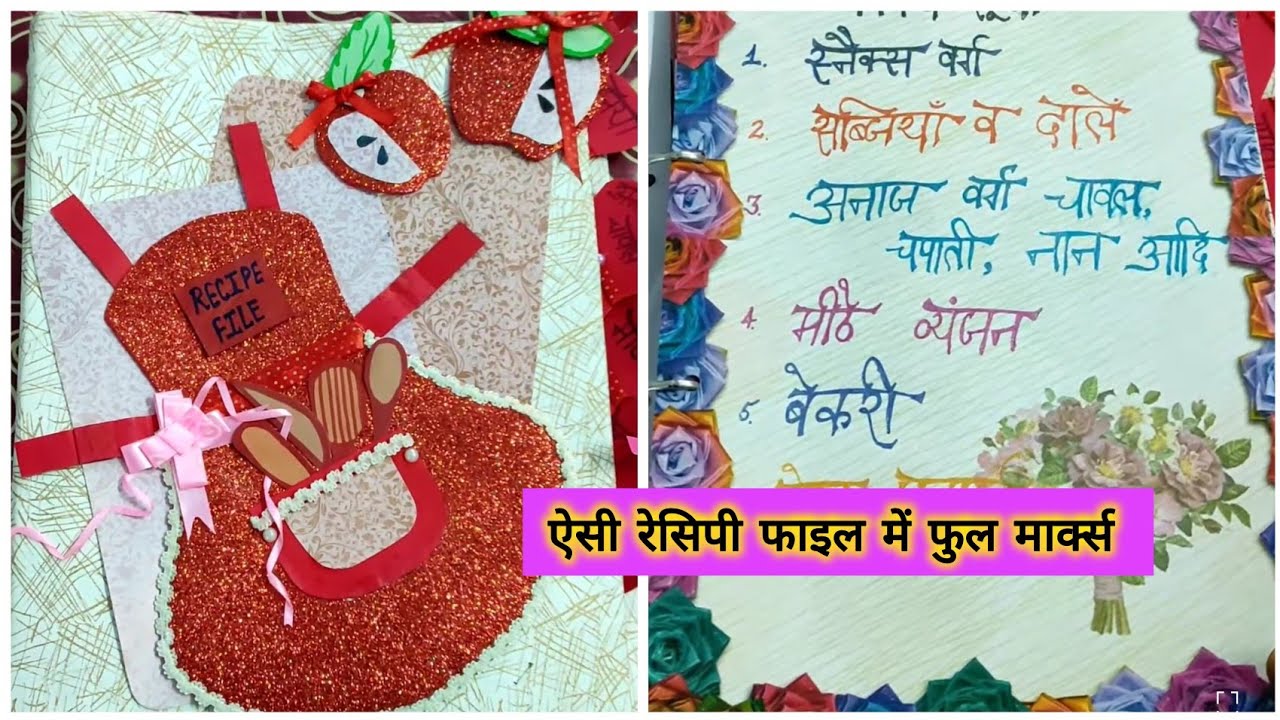 RECIPE
FILE
1. स्नैक्स वर्ग
2. सब्जियाँ व दालें
3. अनाज वर्ग चावल,
चपाती, नान आदि
4. मीठे व्यंजन
5. बेकरी
ऐसी रेसिपी फाइल में फुल मार्क्स